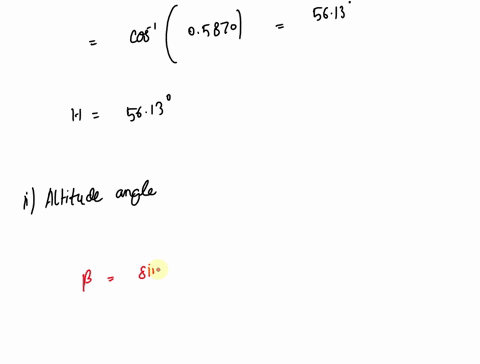 = cos⁻¹ ( 0.5870 ) = 56.13°
H = 56.13°
i) Altitude angle
β = sin